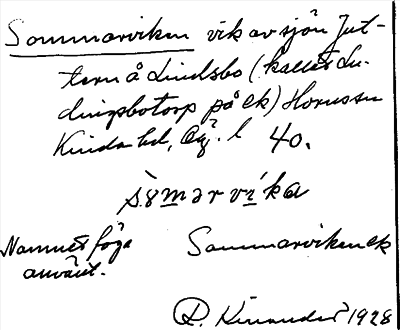 Sommarviken vik av sjön Jut-
tern å Lindsbo (kallet Lu-
dingsbotorp på ek) Horn ssn
Kinda hd, Ög. l 40.
s.ȣmərvika
Namnet föga Sommarviken ek
använt.
R. Kinander 1928